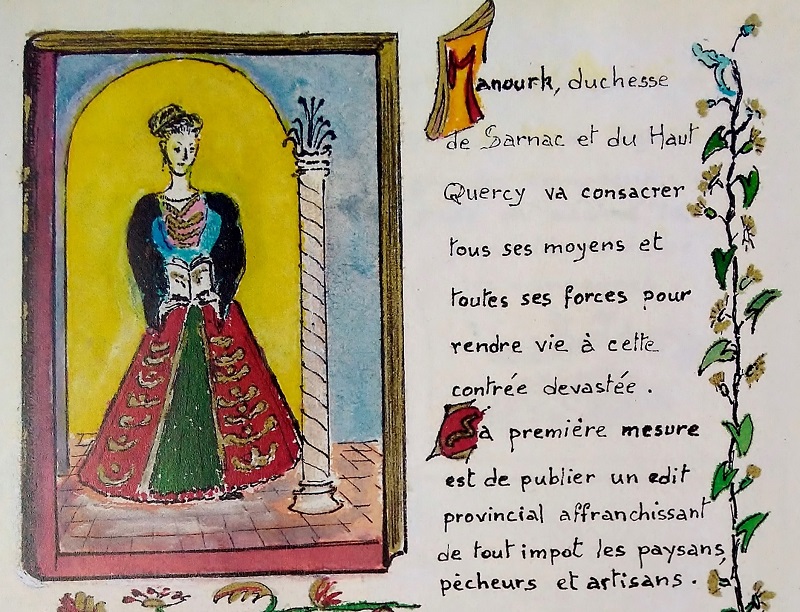 Manourk, duchesse
de Sarnac et du Haut
Quercy va consacrer
tous ses moyens et
toutes ses forces pour
rendre vie à cette
contrée devastée.
Sa première mesure
est de publier un edit
provincial affranchissant
de tout impot les paysans,
pêcheurs et artisans.